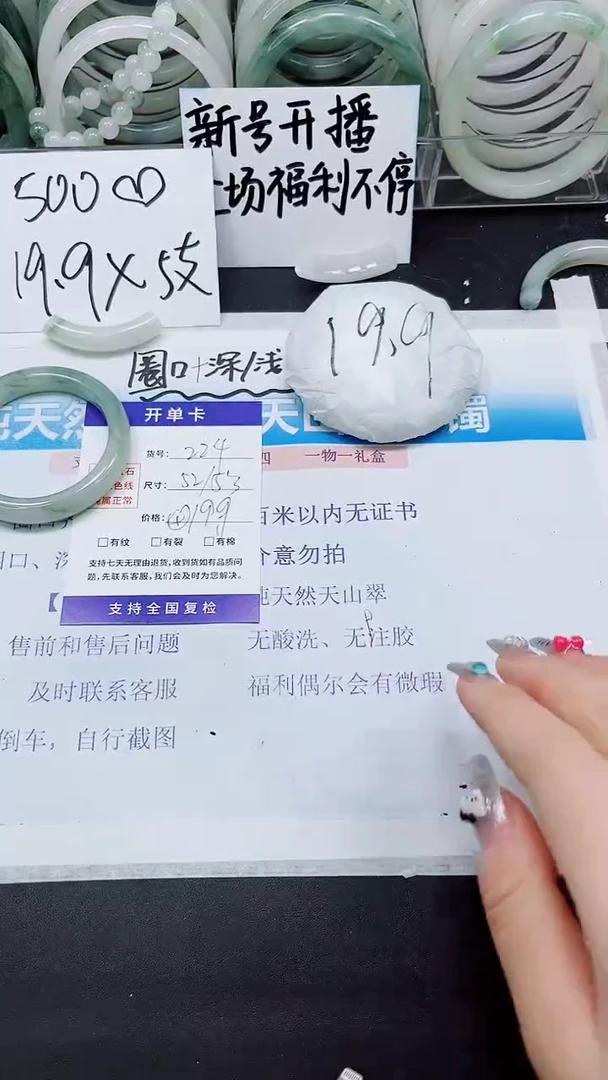 新号开播
场福利不停
500♡
19.9×5支
19.9
圈口+深/浅
纯天然
天山
镯
一物一礼盒
开单卡
货号: 224
尺寸: 52/53
价格: 199
石
色线
属正常
□有纹 □有裂 □有棉
支持七天无理由退货,收到货如有品质问
题,先联系客服,我们会及时为您解决。
支持全国复检
百米以内无证书
介意勿拍
纯天然天山翠
售前和售后问题
无酸洗、无注胶
及时联系客服
福利偶尔会有微瑕
倒车，自行截图